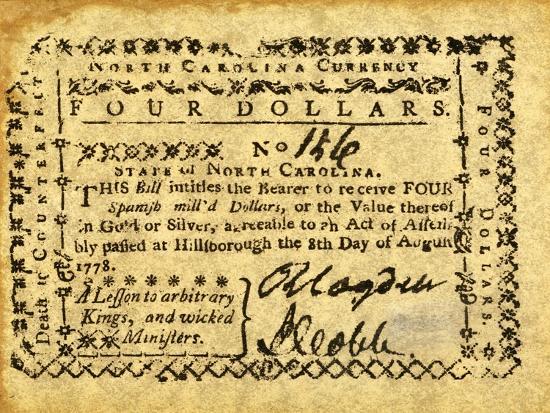 NORTH CAROLINA CURRENCY
FOUR DOLLARS.
No 156
STATE of NORTH CAROLINA.
THIS Bill intitles the Bearer to receive FOUR
Spanish mill'd Dollars, or the Value thereof
in Gold or Silver, agreeable to an Act of Assem
bly passed at Hillsborough the 8th Day of August
1778.
A Lesson to arbitrary
Kings, and wicked
Ministers.
Death to Counterfeit
FOUR DOLLARS